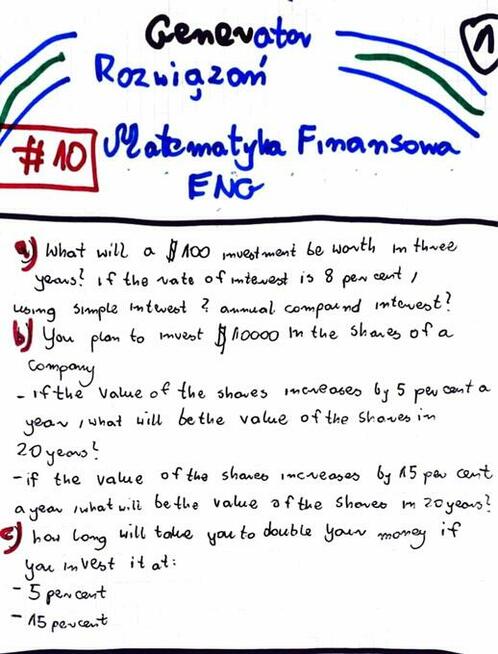 Generator
1
Rozwiązań
#10
Matematyka Finansowa
ENG
a) What will a $100 investment be worth in three
years? if the rate of interest is 8 per cent,
using simple interest? annual compound interest?
b) You plan to invest $10000 in the shares of a
company
- if the value of the shares increases by 5 per cent a
year, what will be the value of the shares in
20 years?
- if the value of the shares increases by 15 per cent
a year, what will be the value of the shares in 20 years?
c) how long will take you to double your money if
you invest it at:
- 5 percent
- 15 percent